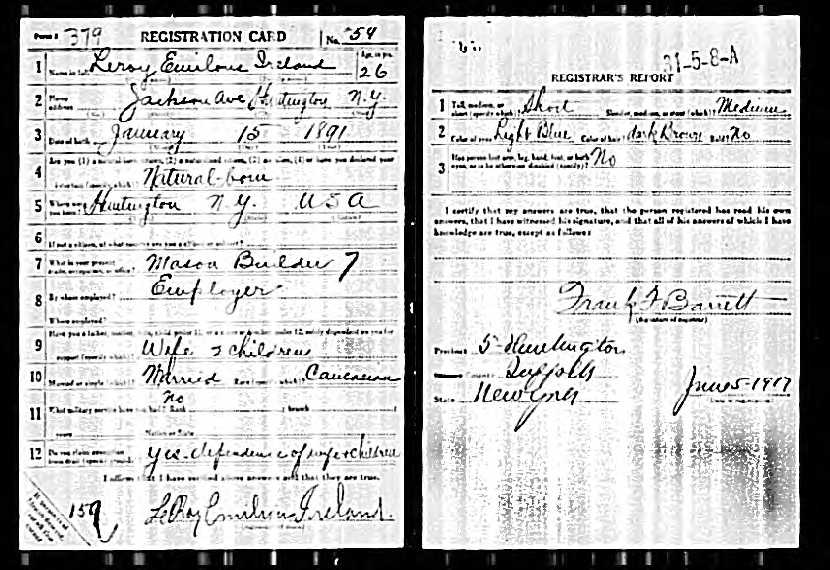 Form 1 379 REGISTRATION CARD No. 54
1 Name in full Leroy Emilous Ireland Age, in yrs. 26
2 Home address Jackson Ave Huntington N.Y.
3 Date of birth January 15 1891
4 Are you (1) a natural-born citizen, (2) a naturalized citizen, (3) an alien, (4) or have you declared your
Natural-born
5 Where were you born? Huntington N.Y. USA
6 If not a citizen, of what country are you a citizen or subject?
7 What is your present trade, occupation, or office? Mason Builder 7
8 By whom employed? Employer
Where employed?
9 Have you a father, mother, wife, child under 12, or a sister or brother under 12, solely dependent on you for
support (specify which)? Wife children
10 Married or single (which)? Married Race (specify which)? Caucasian
No
11 What military service have you had? Rank branch
years Nation or State
12 Do you claim exemption from draft (specify grounds)? Yes. dependence of wife + children
I affirm that I have verified above answers and that they are true.
159 LeRoy Emilous Ireland
31-5-8-A
REGISTRAR'S REPORT
1 Tall, medium, or short (specify which)? Short Slender, medium, or stout (which)? Medium
2 Color of eyes Light Blue Color of hair dark Brown Bald? No
3 Has person lost arm, leg, hand, foot, or both eyes, or is he otherwise disabled (specify)? No
I certify that my answers are true, that the person registered has read his own
answers, that I have witnessed his signature, and that all of his answers of which I have
knowledge are true, except as follows:
Frank F Barrett
(Signature of registrar)
Precinct 5- Huntington
County Suffolk
State New York June 5-1917